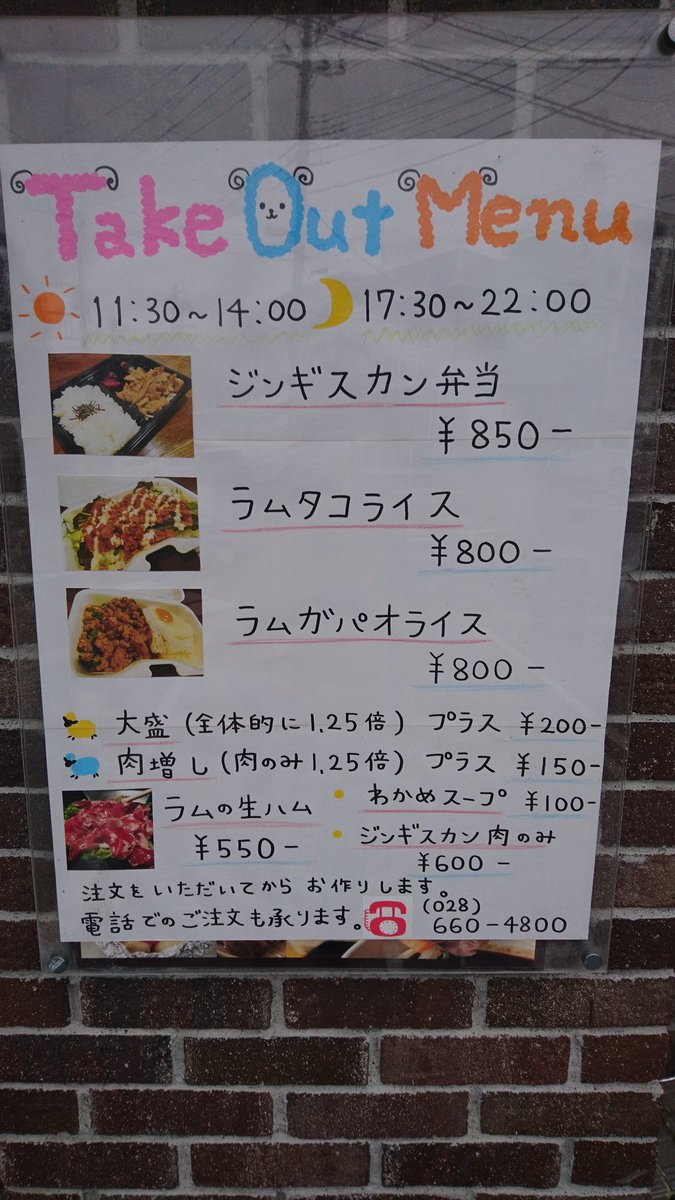 Take Out Menu
11:30~14:00 17:30~22:00
ジンギスカン弁当
¥850-
ラムタコライス
¥800-
ラムガパオライス
¥800-
大盛(全体的に1,25倍) プラス ¥200-
肉増し(肉のみ1,25倍) プラス ¥150-
ラムの生ハム
¥550-
・わかめスープ ¥100-
・ジンギスカン肉のみ
¥600-
注文をいただいてからお作りします。
電話でのご注文も承ります。 (028)
660-4800